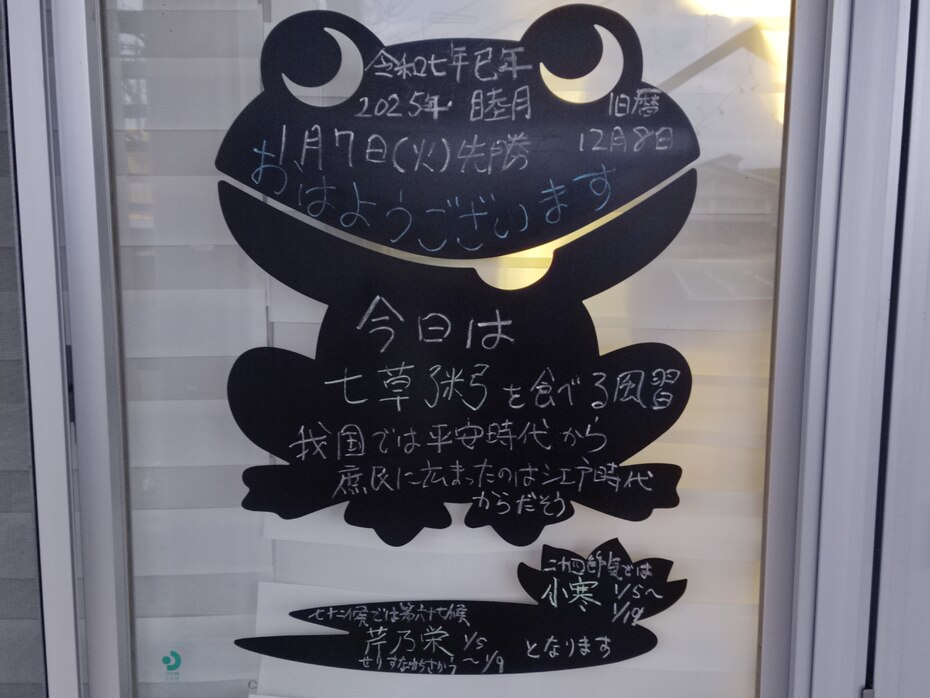 令和七年巳年
2025年 睦月 旧暦
1月7日(火)先勝 12月8日
おはようございます
今日は
七草粥を食べる風習
我国では平安時代から
庶民に広まったのは江戸時代
からだそう
二十四節気では
小寒 1/5〜
1/19
七十二候では第六十七候
芹乃栄 1/5
せりすなわちさかう 〜1/9
となります